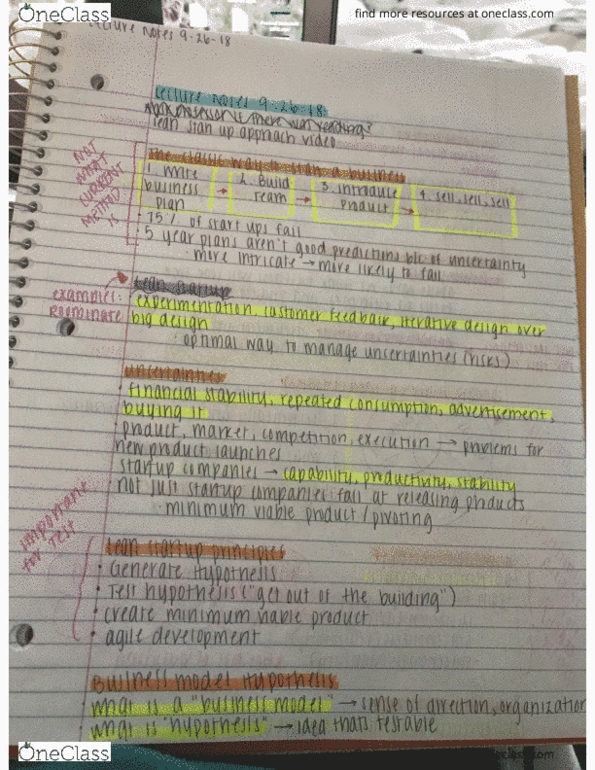 OneClass
find more resources at oneclass.com
Lecture Notes 9-26-18
Lecture Notes 9-26-18
lean start up approach video
The classic way to start a business
NOT WHAT CURRENT METHOD IS
1. write business plan → 2. Build Team → 3. introduce product → 4. sell, sell, sell
75% of start ups fail
5 year plans aren't good predictions b/c of uncertainty
· more intricate → more likely to fail
Lean Startup
example: Roominate
experimentation customer feedback, iterative design over
big design
· optimal way to manage uncertainties (risks)
uncertainties
· financial stability, repeated consumption, advertisement,
buying it
· product, market, competition, execution → problems for
new product launches
startup companies → capability, productivity, stability
not just startup companies fail at releasing products
· minimum viable product / pivoting
important for Test
Lean startup principles
• Generate Hypothesis
• Test hypothesis ("get out of the building")
• create minimum viable product
• agile development
Business model Hypothesis
what is a "business model" → sense of direction, organization
what is "hypothesis" → idea thats testable
OneClass
find more resources at oneclass.com